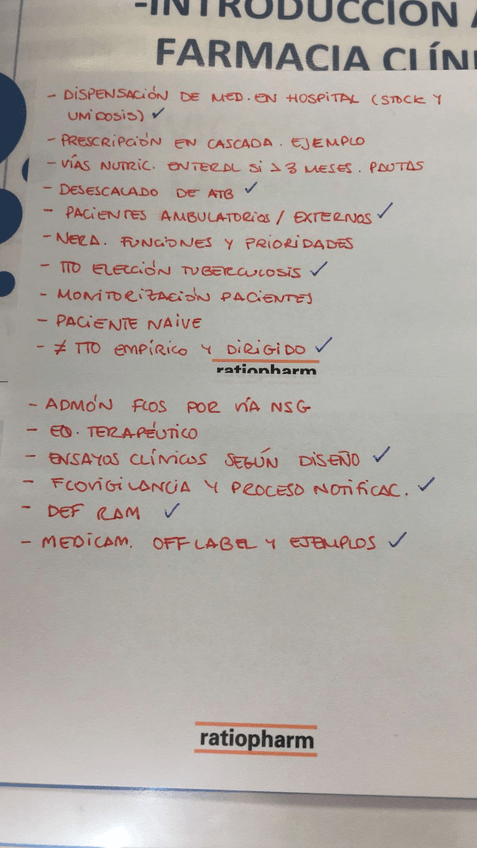 -INTRODUCCIÓN A
FARMACIA CLÍNI
- DISPENSACIÓN DE MED. EN HOSPITAL (STOCK Y
UNIDOSIS) ✓
- PRESCRIPCIÓN EN CASCADA. EJEMPLO
- VÍAS NUTRIC. ENTERAL SI > 3 MESES. PAUTAS
- DESESCALADO DE ATB ✓
- PACIENTES AMBULATORIOS / EXTERNOS ✓
- NERA. FUNCIONES Y PRIORIDADES
- TTO ELECCIÓN TUBERCULOSIS ✓
- MONITORIZACIÓN PACIENTES
- PACIENTE NAIVE
- ≠ TTO EMPÍRICO Y DIRIGIDO ✓
ratiopharm
- ADMÓN FCOS POR VÍA NSG
- EQ. TERAPÉUTICO
- ENSAYOS CLÍNICOS SEGÚN DISEÑO ✓
- FCOVIGILANCIA Y PROCESO NOTIFICAC. ✓
- DEF RAM ✓
- MEDICAM. OFF LABEL Y EJEMPLOS ✓
ratiopharm